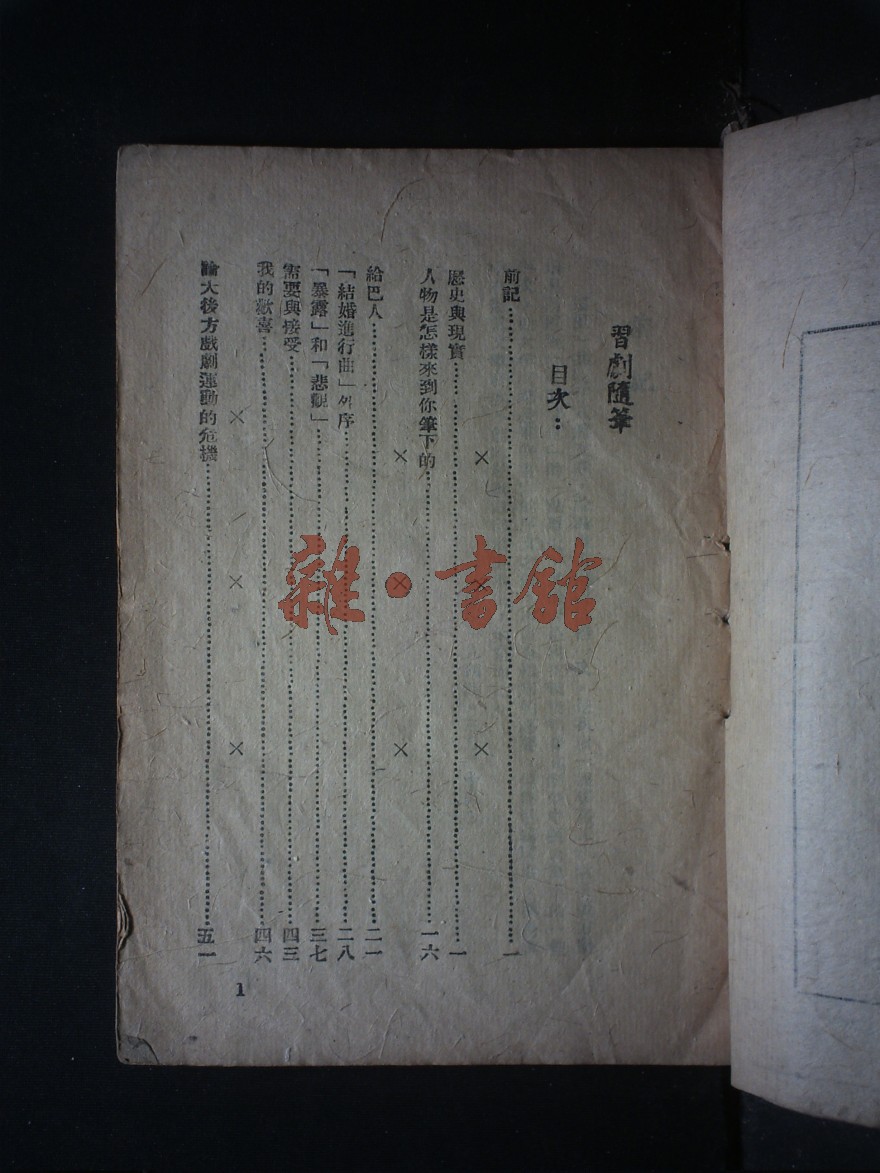 習劇隨筆
目次：
前記……一
歷史與現實……一
× × ×
人物是怎樣來到你筆下的……一六
× × ×
給巴人……二一
「結婚進行曲」外序……二八
「暴露」和「悲觀」……三七
需要與接受……四三
我的歡喜……四六
× × ×
論大後方戲劇運動的危機……五一
1
雜·書館